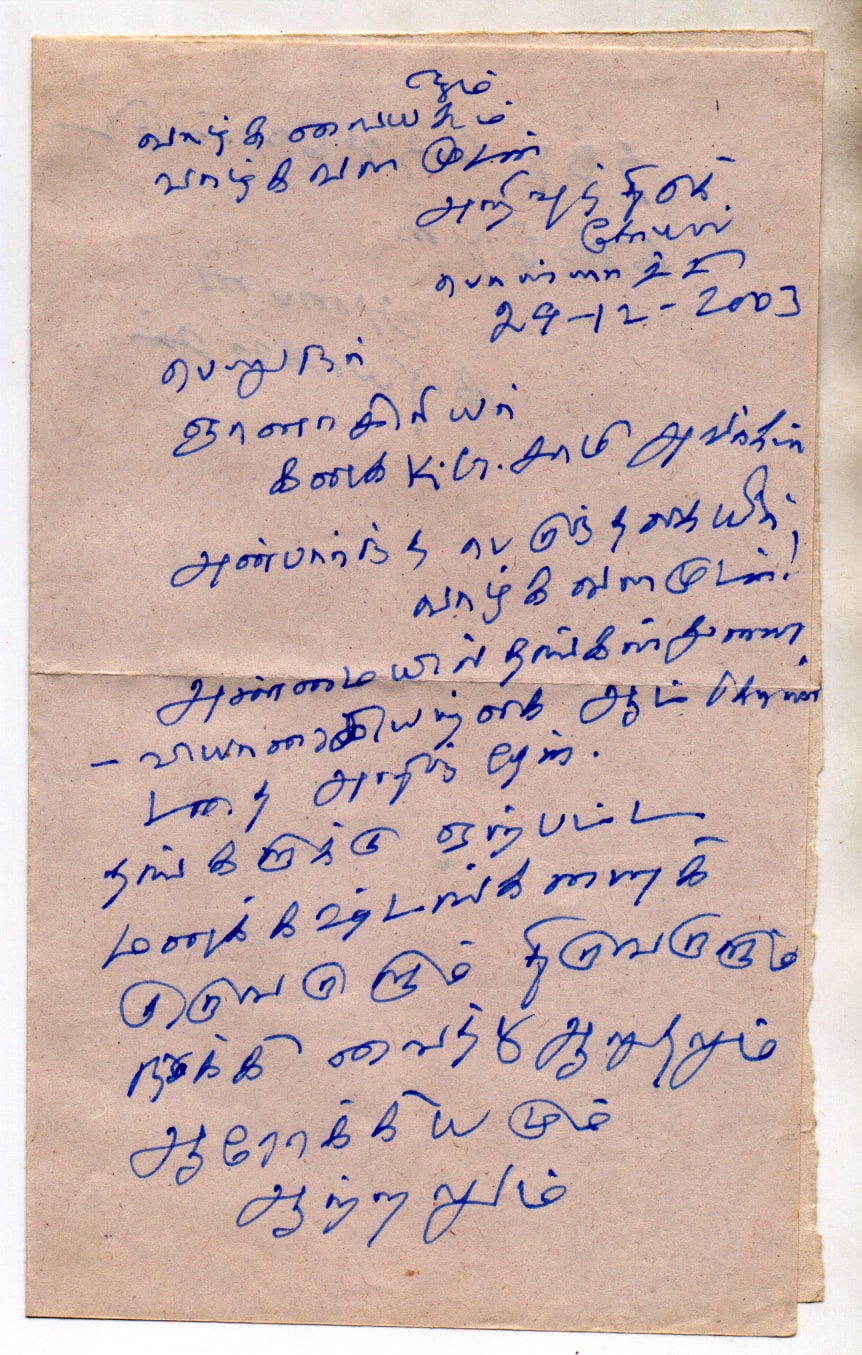 ஓம்
வாழ்க வையகம்
வாழ்க வளமுடன்
அறிவுத் திருக்
கோயில்
29-12-2003
பெறுநர்
ஞானாசிரியர்
K.G. சாமி அவர்கள்
அன்பார்ந்த பெருந்தகையீர்,
வாழ்க வளமுடன்!
அண்மையில் தங்கள் துணை
வியார் இயற்கை
அறிந்தேன்.
தங்களுக்கு ஏற்பட்ட
மனக்கஷ்டங்களைக்
குருவருளும் திருவருளும்
நீக்கி வைத்து ஆறுதலும்
ஆரோக்கியமும்
ஆற்றலும்